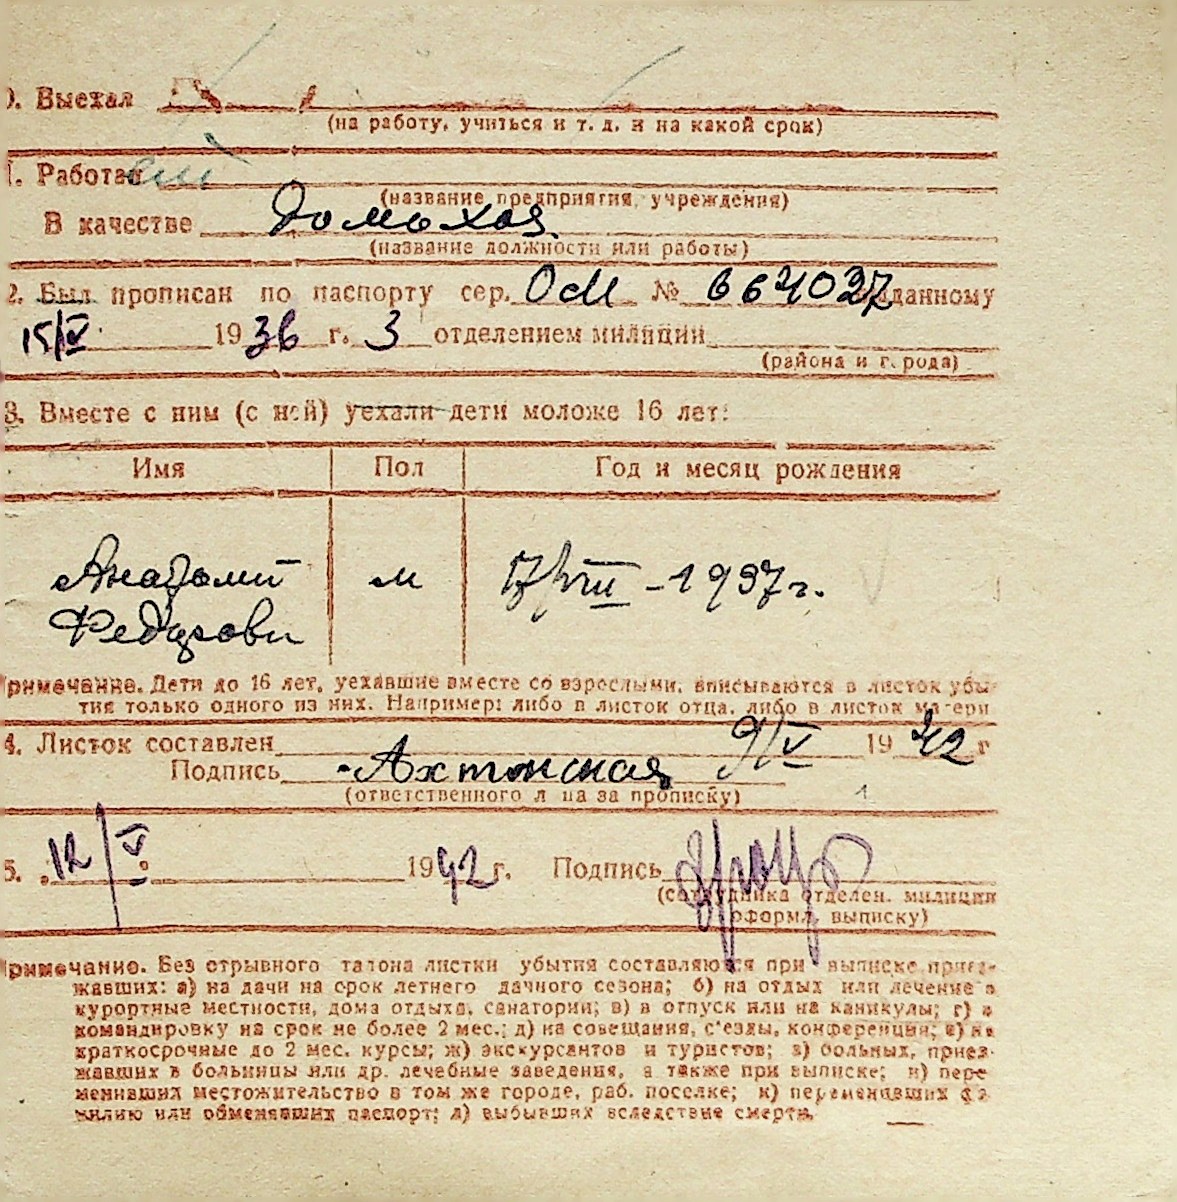 0. Выехал
(на работу, учиться и т. д. и на какой срок)
1. Работал
(название предприятия, учреждения)
В качестве домохоз.
(название должности или работы)
2. Был прописан по паспорту сер. ОсМ № 664037 выданному
15/V 1936 г. 3 отделением милиции
(района и города)
3. Вместе с ним (с ней) уехали дети моложе 16 лет:
Имя Пол Год и месяц рождения
Анатолий м 17/VIII - 1937 г.
римечание. Дети до 16 лет, уехавшие вместе со взрослыми, вписываются в листок убы-
тия только одного из них. Например: либо в листок отца, либо в листок матери
4. Листок составлен 9/V 1942 г
Подпись
(ответственного лица за прописку)
5. 12/V 1942 г. Подпись
(сотрудника отделен. милиции
оформл. выписку)
римечание. Без отрывного талона листки убытия составляются при выписке приез-
жавших: а) на дачи на срок летнего дачного сезона; б) на отдых или лечение в
курортные местности, дома отдыха, санатории; в) в отпуск или на каникулы; г) в
командировку на срок не более 2 мес.; д) на совещания, с'езды, конференции; е) на
краткосрочные до 2 мес. курсы; ж) экскурсантов и туристов; з) больных, приез-
жавших в больницы или др. лечебные заведения, а также при выписке; и) пере
менивших местожительство в том же городе, раб. поселке; к) переменивших фа-
милию или обменявших паспорт; л) выбывших вследствие смерти.